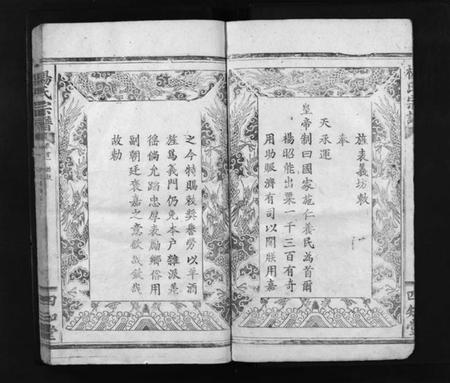 楊氏宗譜
四知堂
旌表義坊敕
奉
天承運
皇帝制曰國家施仁養民為首爾
楊昭能出粟一千三百有奇
用助賑濟有司以聞朕用嘉
之今特賜敕獎譽勞以羊酒
旌為義門仍免本戶雜派差
徭倘允蹈忠厚表勵鄉俗用
副朝廷褒嘉之意欽哉欽哉
故勅
楊氏宗譜
四知堂